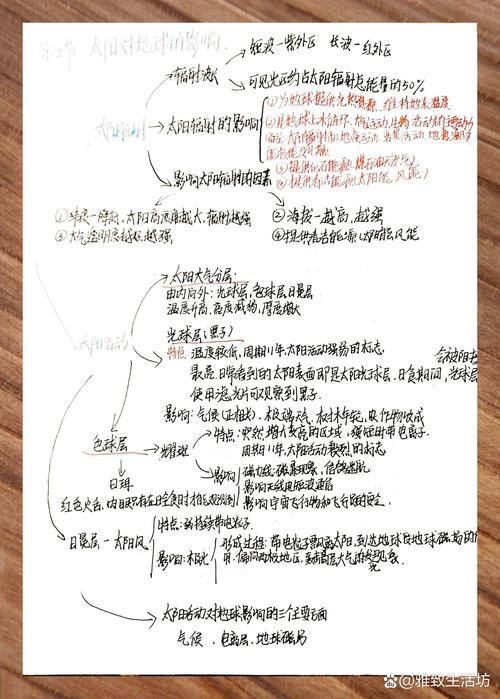 第二节 太阳对地球的影响.
短波—紫外区 长波—红外区
辐射波长
可见光区约占太阳辐射总能量的50%
太阳辐射
太阳辐射的影响
①为地球提供光热资源,维持地表温度.
是地球上水循环、大气运动、生物活动的主要动力
④提供清洁能源(太阳能、风能)
影响太阳辐射的因素
①纬度—一般,太阳高度角越大,辐射越强
②海拔—越高,越强
③大气透明度越好,越强
④提供清洁能源(太阳能、风能
太阳大气分层:
由内向外:光球层,色球层,日冕层
温度升高,密度减物,厚度增大
太阳活动
光球层(黑子)
特点 温度较低,周期11年,太阳活动强弱的标志
最亮,日常看到的太阳表面即是太阳光球层,日食期间,光球层
使用滤光片可观察到黑子.
影响:气候(正相关),极端天气,树木年轮,农作物收成
色球层
耀斑
特点:突然增大变亮的区域,强短时带电离子.
周期11年,太阳活动最烈的标志
影响
磁力线、磁暴现象,信鸽迷航
影响无线电短波通信
影响宇宙飞行物和飞行路安全
日珥
红色火舌,肉眼只有在日全食时才能观测到
日冕层—太阳风
特点:高持续带电粒子.
影响:极光
形成过程:带电粒子飘离太阳,到达地球后地球磁场的作
用,偏向两极地区,
太阳活动对地球影响的三个主要方面
气候、电离层,地球磁场
@雅致生活坊